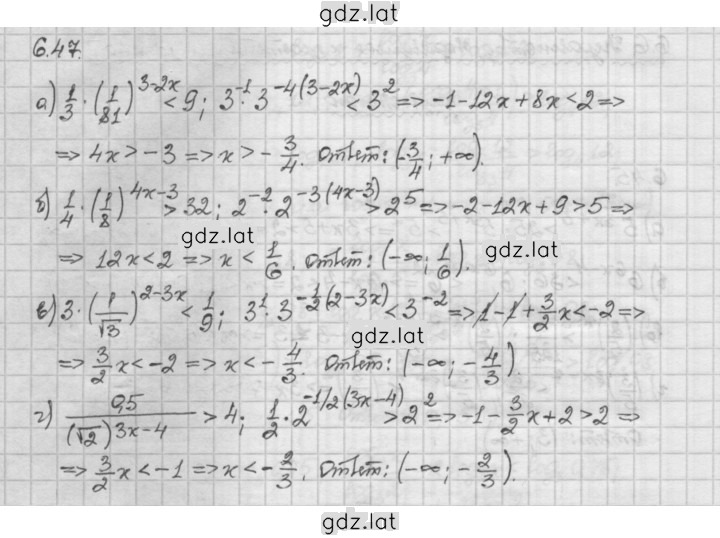 gdz.lat
6.47.
а) 1/3 · (1/81)^(3-2x) < 9; 3^(-1) · 3^(-4(3-2x)) < 3^2 => -1-12x+8x<2 =>
=> 4x > -3 => x > -3/4. Ответ: (-3/4; +∞).
б) 1/4 · (1/8)^(4x-3) > 32; 2^(-2) · 2^(-3(4x-3)) > 2^5 => -2-12x+9>5 =>
gdz.lat
=> 12x<2 => x < 1/6. Ответ: (-∞; 1/6).
gdz.lat
в) 3 · (1/√3)^(2-3x) < 1/9; 3^1 · 3^(-1/2(2-3x)) < 3^(-2) => 1-1+3/2x<-2 =>
gdz.lat
=> 3/2x<-2 => x < -4/3. Ответ: (-∞; -4/3).
г) 0,5/(√2)^(3x-4) > 4; 1/2 · 2^(-1/2(3x-4)) > 2^2 => -1-3/2x+2>2 =>
=> 3/2x < -1 => x < -2/3. Ответ: (-∞; -2/3).
gdz.lat